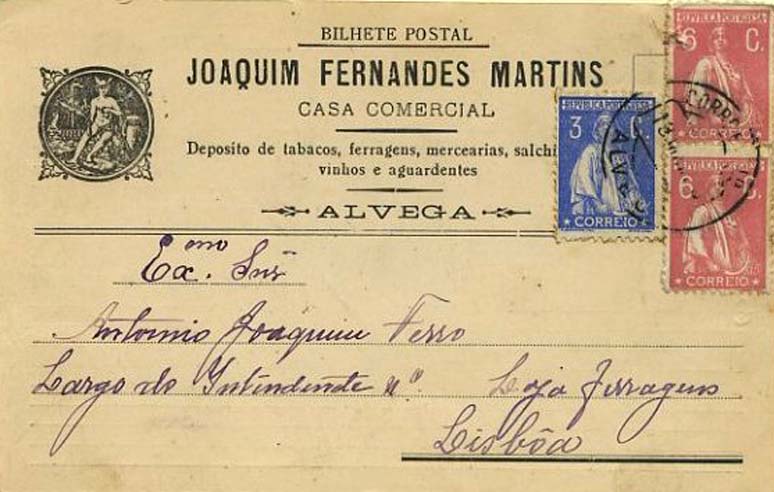 BILHETE POSTAL
JOAQUIM FERNANDES MARTINS
CASA COMERCIAL
Deposito de tabacos, ferragens, mercearias, salchi
vinhos e aguardentes
ALVEGA
REPUBLICA PORTUGUESA
3 C.
CORREIO
REPUBLICA PORTUGUESA
6 C.
CORREIO
REPUBLICA PORTUGUESA
6 C.
CORREIO
CORREIO
ALVEGA
Exmo. Snr
Antonio Joaquim Ferro
Largo do Intendente nº. Loja Ferragens
Lisbôa